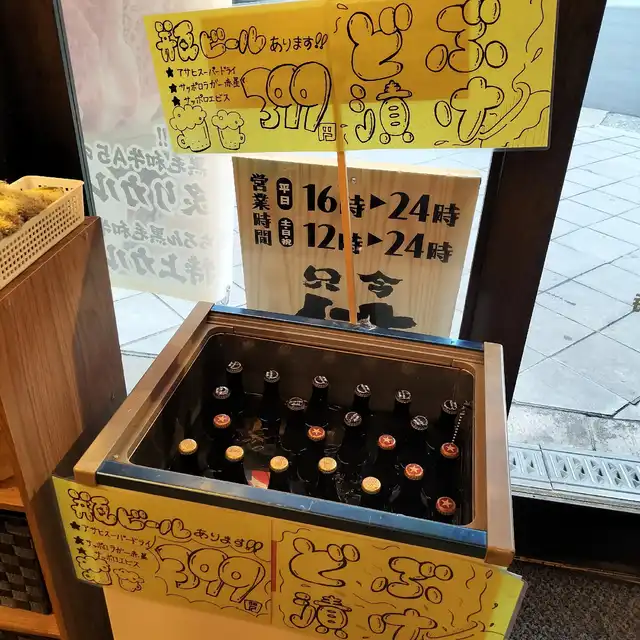 瓶ビールあります!!
★アサヒスーパードライ
★サッポロラガー赤星
★サッポロエビス
399円
どぶ
漬け
営業時間
平日 16時▶24時
土日祝 12時▶24時
只今
!!
黒毛和牛A5
炙りカル
黒毛和
特上カル
瓶ビールあります!!
★アサヒスーパードライ
★サッポロラガー赤星
★サッポロエビス
399円
どぶ
漬け